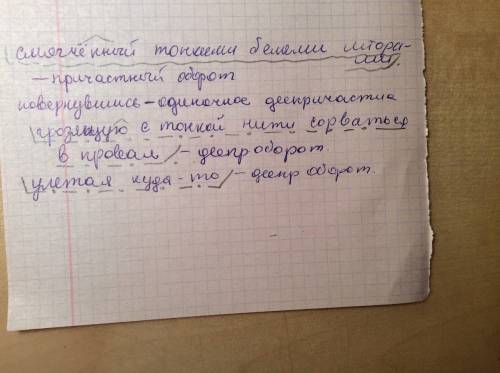 смягчённый тонкими белыми штора-
ми,
— причастный оборот
повернувшись – одиночное деепричастие
грозящую с тонкой нити сорваться
в провал, – деепр оборот.
улетая куда-то – деепр оборот.